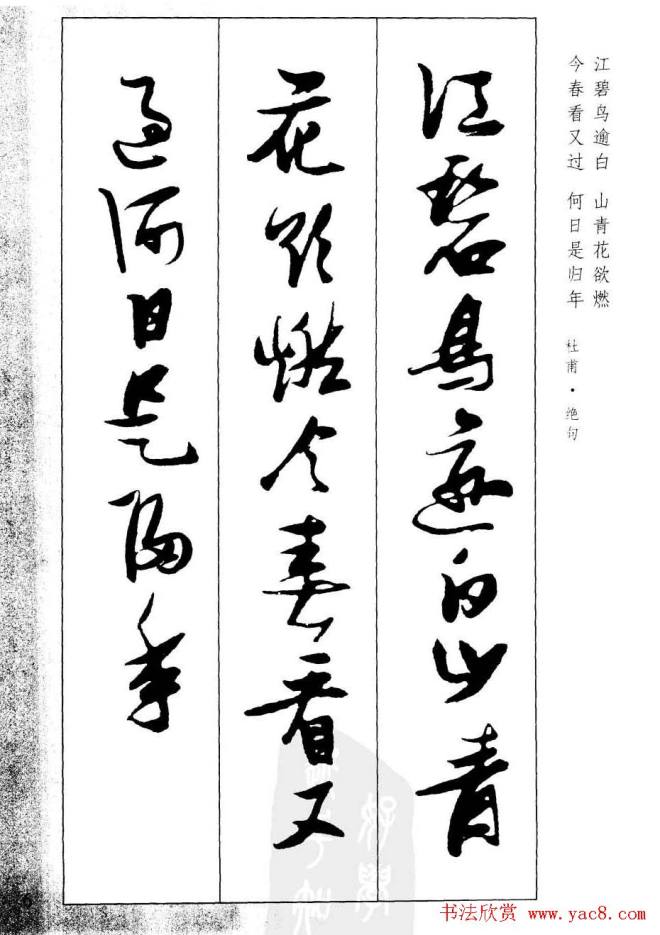 江碧鸟逾白 山青花欲燃
今春看又过 何日是归年
杜甫·绝句
江碧鳥逾白山青
花欲燃今春看又
過何日是歸年
书法欣赏 www.yac8.com